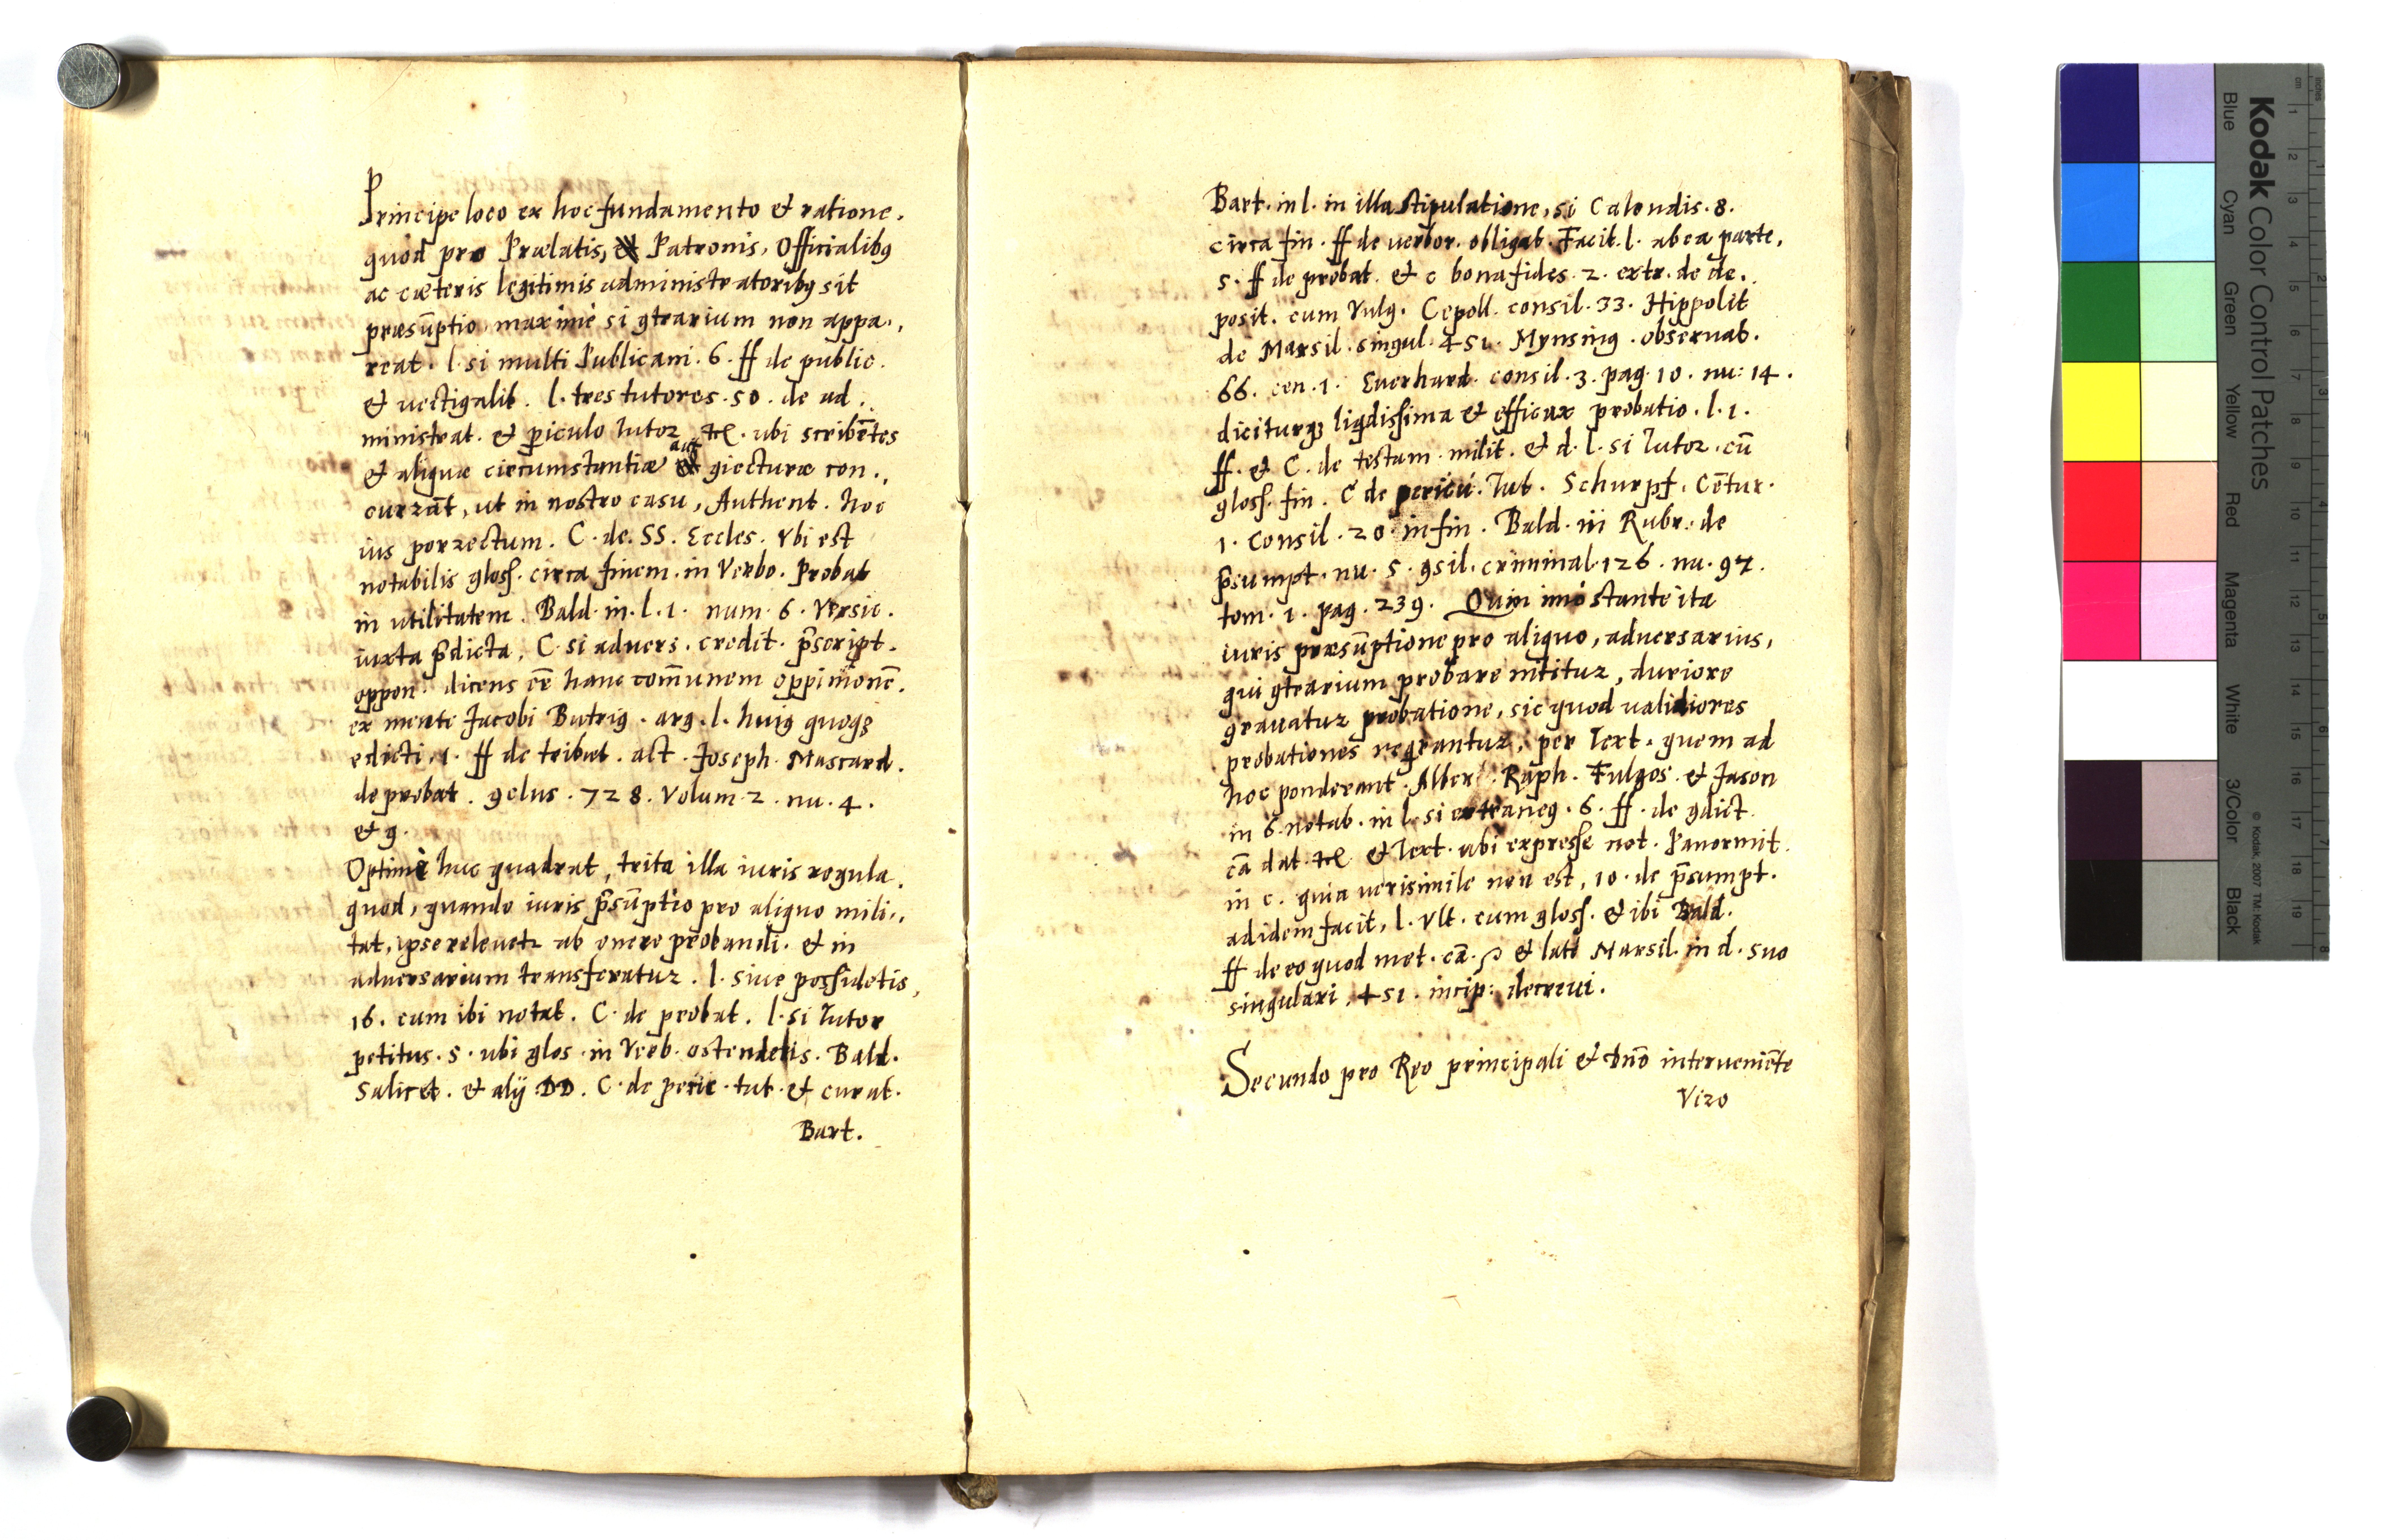 Principe loco ex hoc fundamento et ratione.
quod pro Prælatis, Patronis, Officialibꝯ
ac cæteris legitimis administratoribꝯ sit
præsūptio, maximè si ꝯtrarium non appa.,
reat. l. si multi Publicani. 6. ff de public.
et uectigalib. l. tres tutores. 50. de ad.,
ministrat. et ꝑiculo tutor. ubi scribētes
et aliquæ circumstantiæ aut ꝯiecturæ con.,
currāt, ut in nostro casu, Authent. hoc
ius porrectum. C. de. SS. Eccles. Vbi est
notabilis gloss. circa finem. in Verbo. Probat
in utilitatem. Bald. in. l. 1. num. 6. Versic.
iuxta p̄dicta, C. si aduers. credit. p̄script.
oppon. dicens eē hanc com̄unem oppinionē.
ex mente Jacobi Butrig. arg. l. huiꝯ quoqꝫ
edicti, 1. ff de tribut. act. Joseph. Mascard.
de probat. ꝯclus. 728. Volum. 2. nu. 4.
et 9.
Optimè huc quadrat, trita illa iuris regula.
quod, quando iuris p̄sūptio pro aliquo mili.,
tat, ipse releuetr ab onere probandi. et in
aduersarium transferatur. l. siue possidetis,
16. cum ibi notat. C. de probat. l. si Tutor
petitus. 5. ubi glos. in Verb. ostendetis. Bald.
Salicet. et alij DD. C. de peric. tut. et curat.
Bart.
Bart. in l. in illa stipulatione, si Calendis. 8.
circa fin. ff de verbor. obligat. Facit. l. ab ea parte,
5. ff de probat. et c bona fides. 2. extr. de de.,
posit. cum Vulg. Cepoll. consil. 33. Hippolit
de Marsil. singul. 451. Mynsing. obseruat.
66. cen. 1. Euerhard. consil. 3. pag. 10. nu: 14.
diciturqꝫ liqdissima et efficax probatio. l. 1.
ff. et C. de testam. milit. et d. l. si Tutor. cū
gloss. fin. C de pericu. Tut. Schurpf. Cētur.
1. Consil. 20. in fin. Bald. in Rubr. de
p̄sumpt. nu. 5. ꝯsil. criminal. 126. nu. 97.
tom. 1. pag. 239. Quin imò stante ita
iuris præsūptione pro aliquo, aduersarius,
qui ꝯtrarium probare nititur, duriore
grauatur probatione, sic quod validiores
probationes reqrantur, per Text. quem ad
hoc ponderant Alber. Raph. Fulgos. et Jason
in 6. notab. in l. si extraneꝯ. 6. ff. de ꝯdict.
cā dat. et Text. ubi expresse not. Panormit.
in c. quia uerisimile non est, 10. de p̄sumpt.
ad idem facit, l. Vlt. cum gloss. et ibi Bald.
ff de eo quod met. cā. et latè Marsil. in d. suo
singulari, 451. incip: decreui.
Secundo pro Reo principali et dn̄o interueniēte
Viro